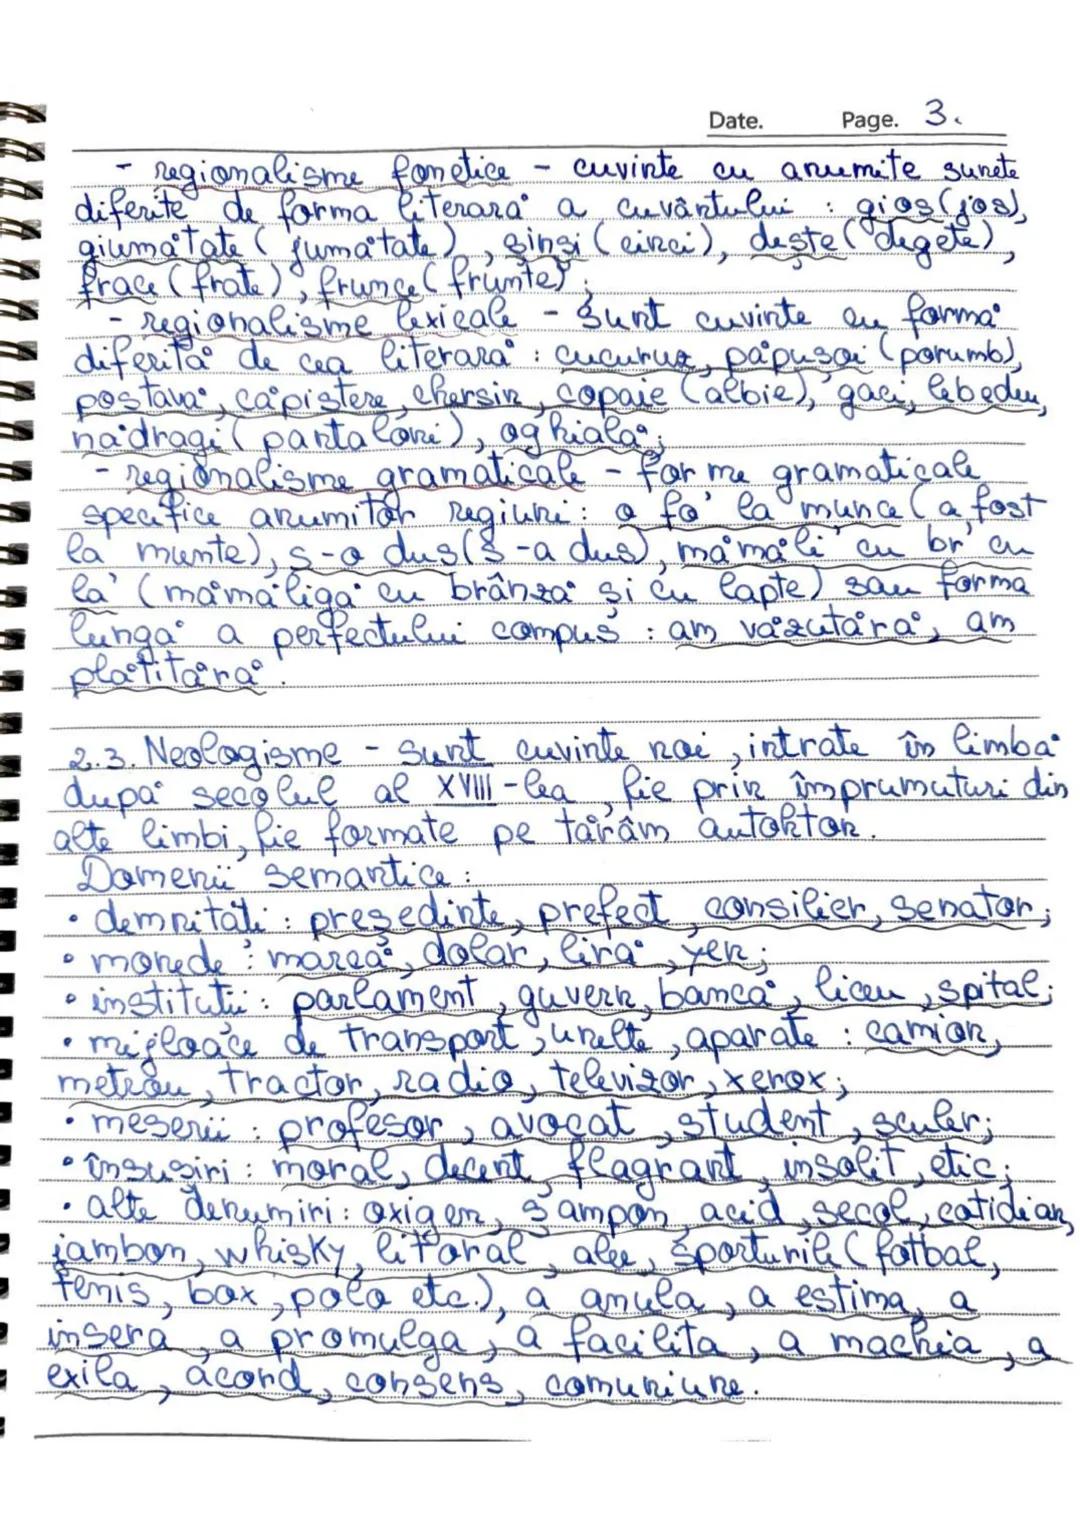 Date. Page. 3.
- regionalisme fonetice - cuvinte cu anumite sunete
diferite de forma literară a cuvântului : gios (jos),
giumătate ( jumătate ) , sinsi ( cinci ), deşte ( degete ) ,
frace ( frate ) , frunce ( frunte ) ;
- regionalisme lexicale - sunt cuvinte cu formă
diferită de cea literară : cucuruz, păpuşoi ( porumb ),
postavă , căpistere, chersin , copaie ( albie ), gaci, lebedeu,
nădragi ( pantaloni ), oghială ;
- regionalisme gramaticale - forme gramaticale
specifice anumitor regiuni : o fo' la munce ( a fost
la munte ), s-o dus ( s-a dus ), mămăli' cu br' cu
la' ( mămăligă cu brânză şi cu lapte ) sau forma
lungă a perfectului compus : am văzutără , am
plătitără .
2.3. Neologisme - sunt cuvinte noi , intrate în limbă
după secolul al XVIII-lea , fie prin împrumuturi din
alte limbi, fie formate pe tărâm autohton .
Domenii semantice :
• demnităţi : preşedinte , prefect , consilier, senator ;
• monede : marcă , dolar, liră , yen ;
• instituţii : parlament , guvern, bancă , liceu , spital ;
• mijloace de transport , unelte , aparate : camion,
metrou , tractor, radio , televizor , xerox ;
• meserii : profesor , avocat , student , sculer ;
• însuşiri : moral, decent , flagrant , insolit , etic ;
• alte denumiri : oxigen, şampon, acid , secol , cotidian,
jambon, whisky, litoral , alee , sporturile ( fotbal,
tenis, box , polo etc. ), a anula , a estima, a
insera , a promulga , a facilita , a machia , a
exila , acord , consens , comuniune .